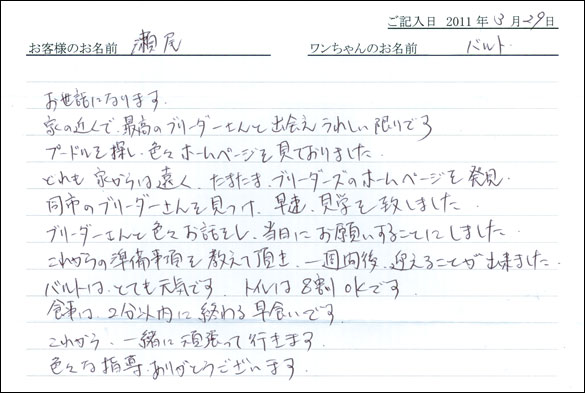 ご記入日 2011年 3月 29日
お客様のお名前 瀬尾 ワンちゃんのお名前 バルト
お世話になります.
家の近くで、最高のブリーダーさんと出会えうれしい限りです
プードルを探し、色々ホームページを見ておりました.
とれも 家からは遠く、たまたま、ブリーダーズのホームページを発見.
同市のブリーダーさんを見つけ、早速、見学を致しました.
ブリーダーさんと色々お話をし、当日にお願いすることにしました.
これからの準備事項を教えて頂き、一週間後、迎えることが出来ました.
バルトは、とても元気です. トイレは8割OKです.
食事は、2分以内に終わる早食いです.
これから、一緒に頑張って行きます.
色々な指導、ありがとうございます.